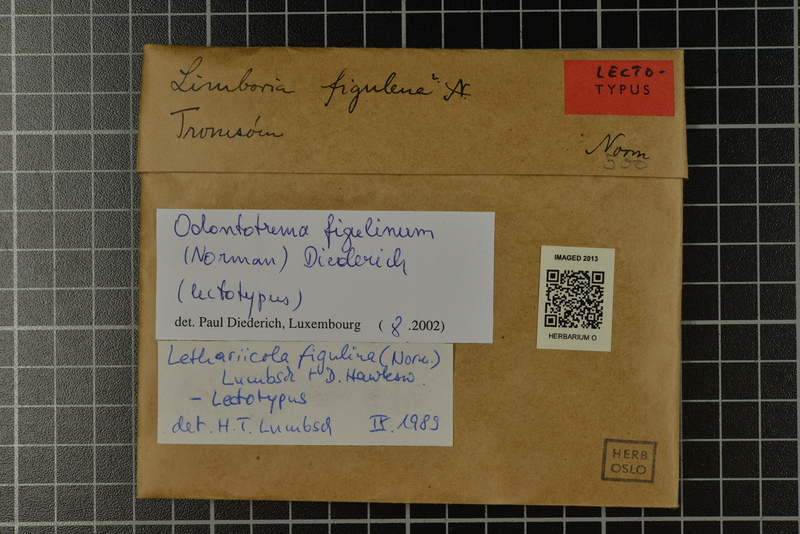 Limboria figulina N.
Tromsöm
LECTO-
TYPUS
Norm
550
Odontotrema figulinum
(Norman) Diederich
(lectotypus)
det. Paul Diederich, Luxembourg ( 8 .2002)
IMAGED 2013
HERBARIUM O
Lethariicola figulina (Norm.)
Lumbsch + D. Hawksw.
- Lectotypus
det. H. T. Lumbsch IX. 1989
HERB
OSLO